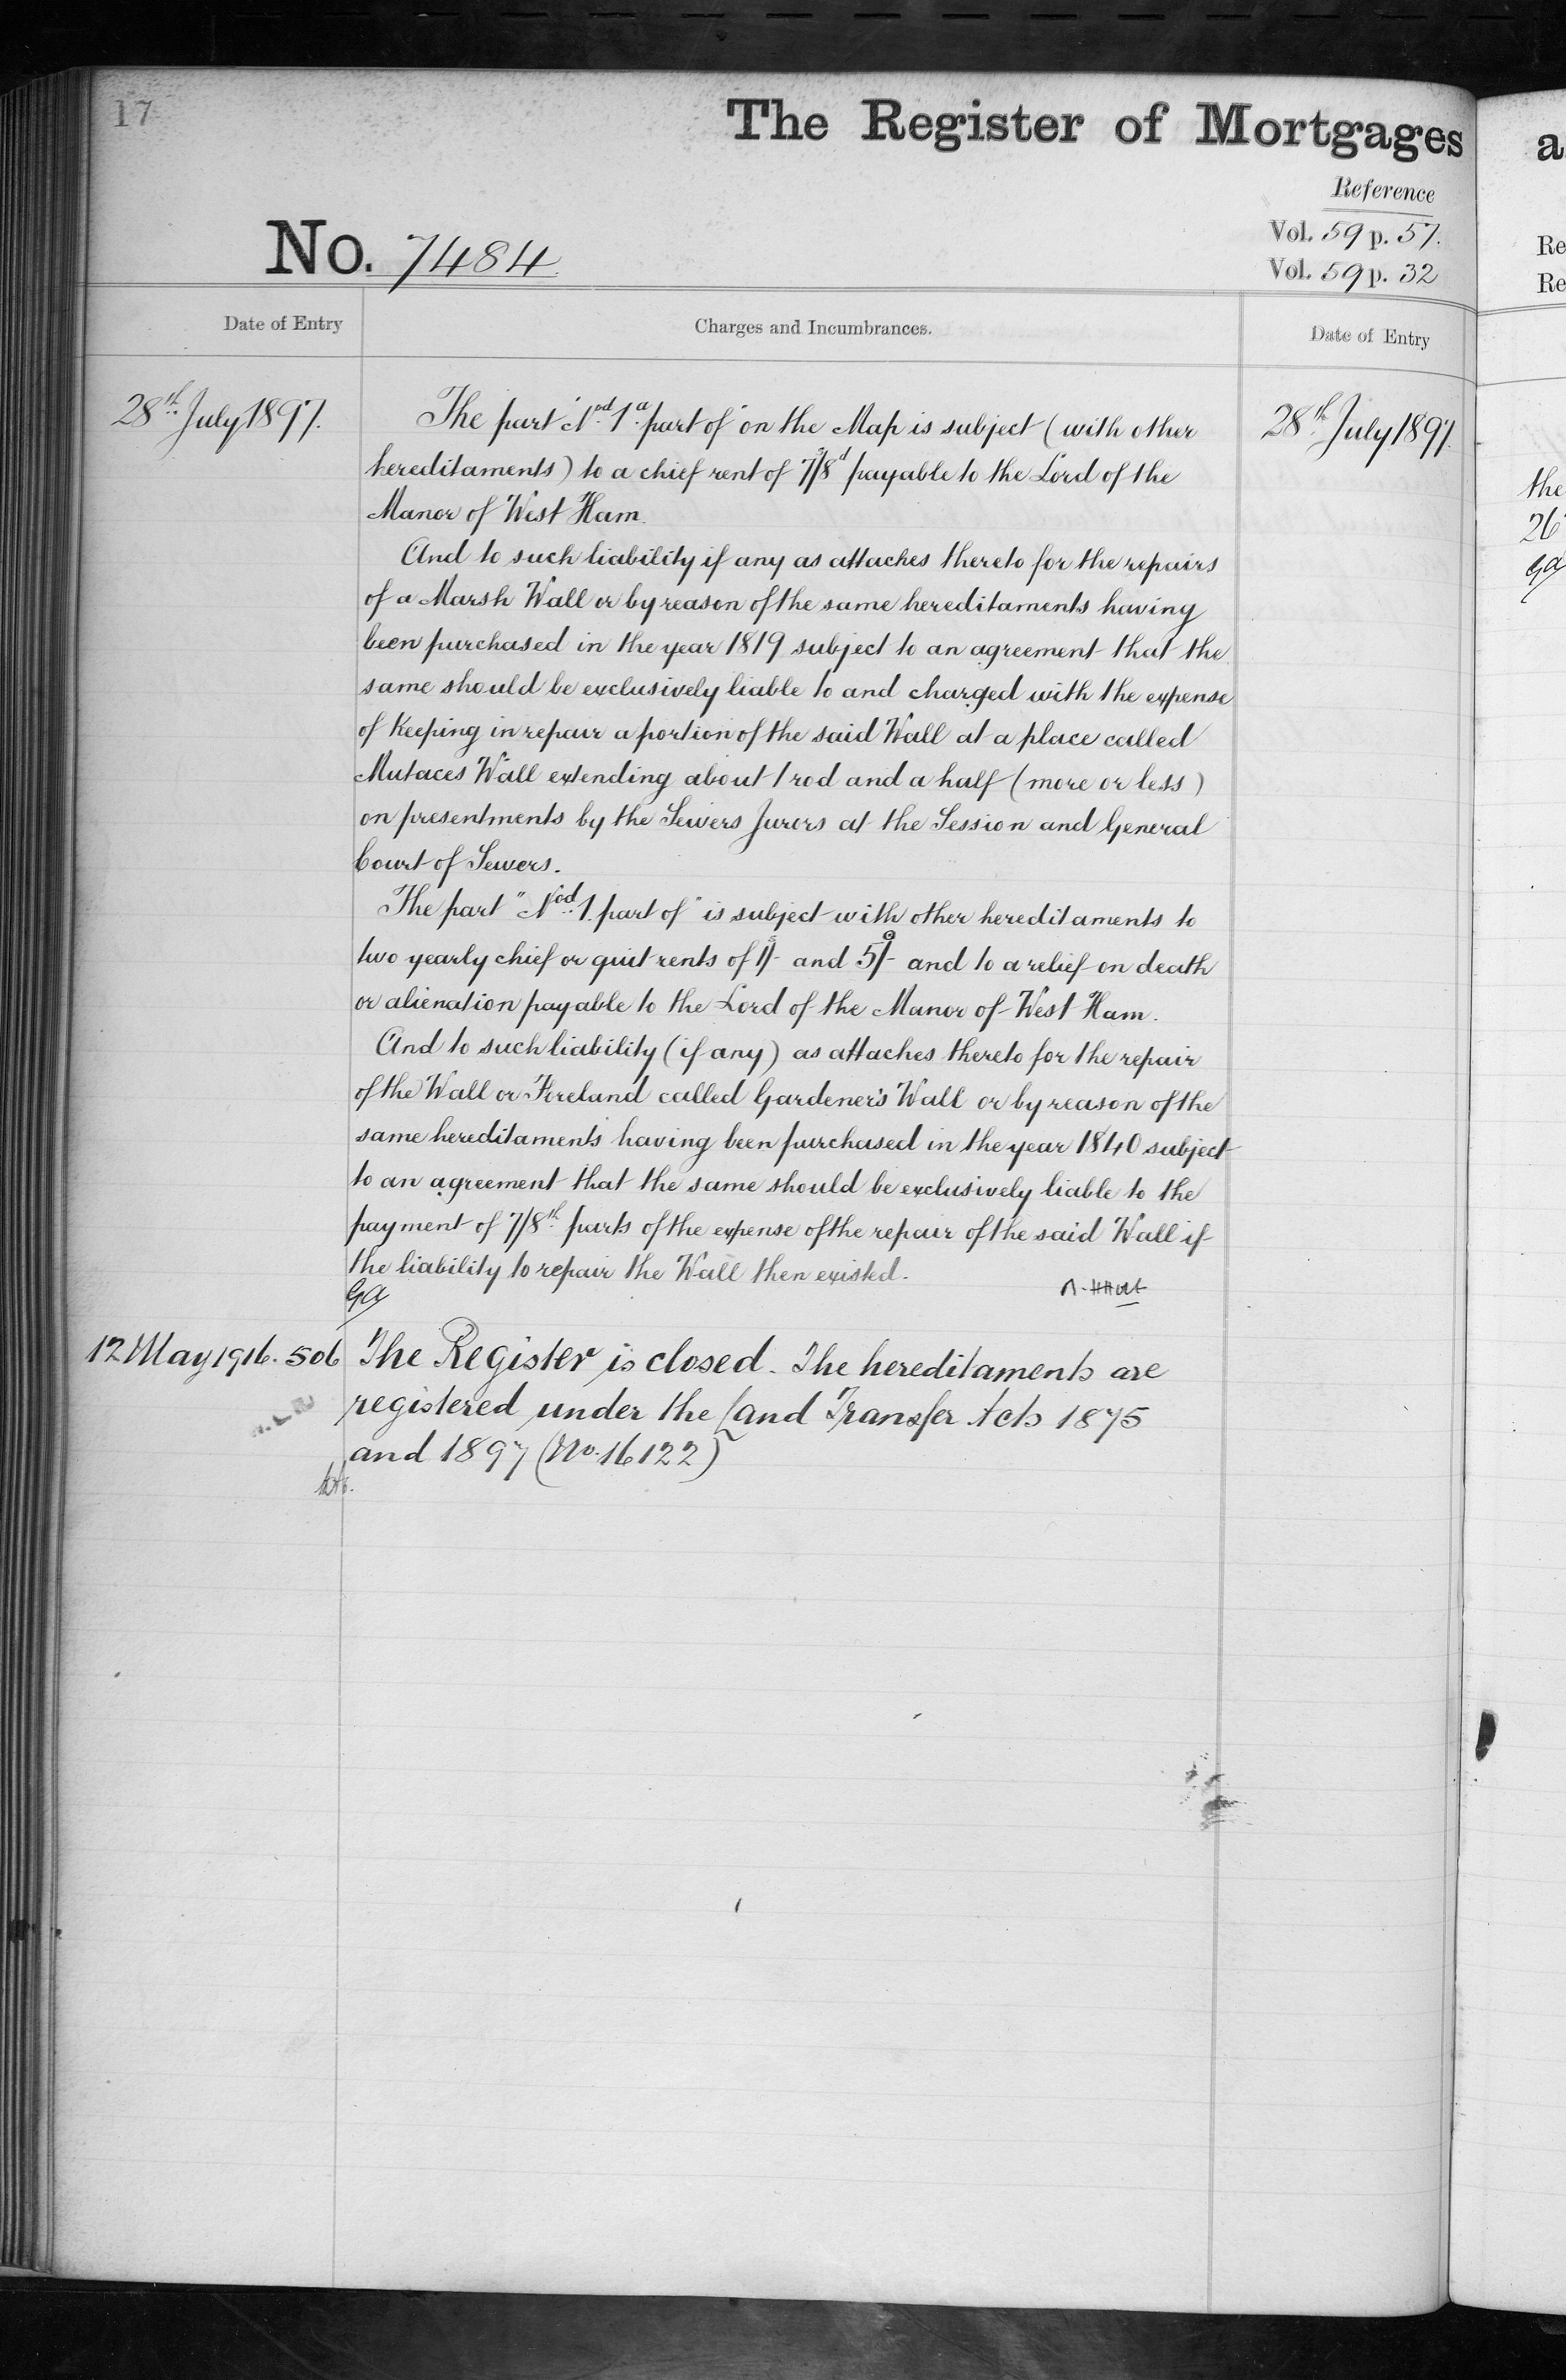 17
The Register of Mortgages
Reference
Vol. 59 p. 57.
Vol. 59 p. 32
No. 7484
Date of Entry
Charges and Incumbrances.
Date of Entry
28th July 1897.
28th July 1897.
The part "Nod 1a part of" on the Map is subject (with other
hereditaments) to a chief rent of 7s/8d payable to the Lord of the
Manor of West Ham.
And to such liability if any as attaches thereto for the repairs
of a Marsh Wall or by reason of the same hereditaments having
been purchased in the year 1819 subject to an agreement that the
same should be exclusively liable to and charged with the expense
of Keeping in repair a portion of the said Wall at a place called
Mutaces Wall extending about 1 rod and a half (more or less)
on presentments by the Sewers Jurors at the Session and General
Court of Sewers.
The part "Nod 1. part of" is subject with other hereditaments to
two yearly chief or quit rents of 1s/- and 5s/- and to a relief on death
or alienation payable to the Lord of the Manor of West Ham.
And to such liability (if any) as attaches thereto for the repair
of the Wall or Foreland called Gardener's Wall or by reason of the
same hereditaments having been purchased in the year 1840 subject
to an agreement that the same should be exclusively liable to the
payment of 7/8th parts of the expense of the repair of the said Wall if
the liability to repair the Wall then existed.
GA
12 May 1916. 506
The Register is closed. The hereditaments are
registered under the Land Transfer Acts 1875
and 1897 (No. 16122)
a
Re
Re
the
26
GA